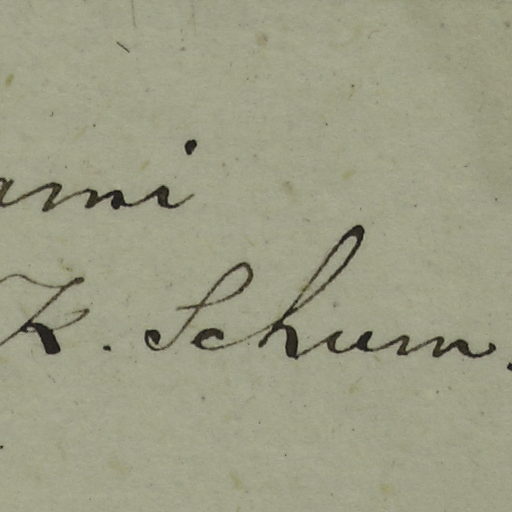 ami
K. Schum.